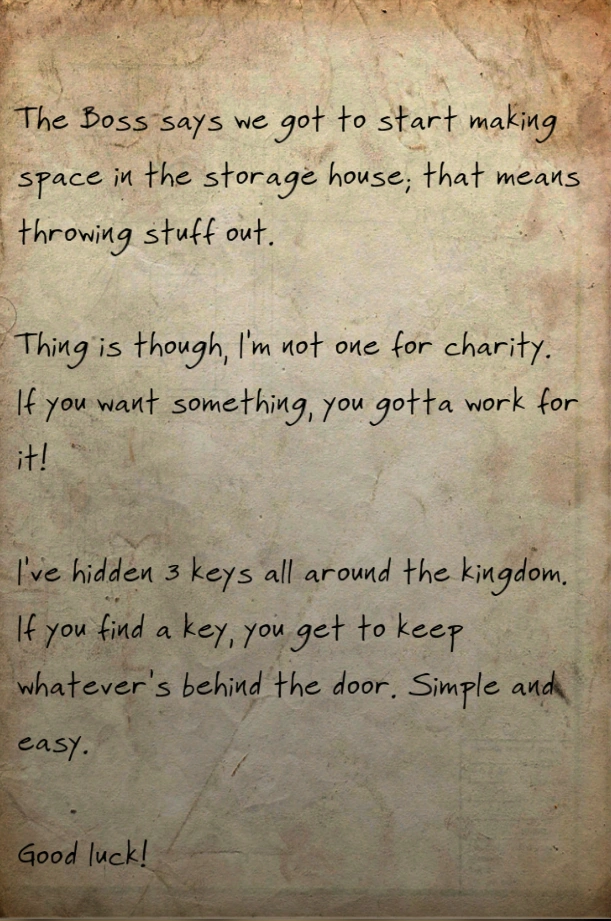 The Boss says we got to start making
space in the storage house; that means
throwing stuff out.
Thing is though, I'm not one for charity.
If you want something, you gotta work for
it!
I've hidden 3 keys all around the kingdom.
If you find a key, you get to keep
whatever's behind the door. Simple and
easy.
Good luck!